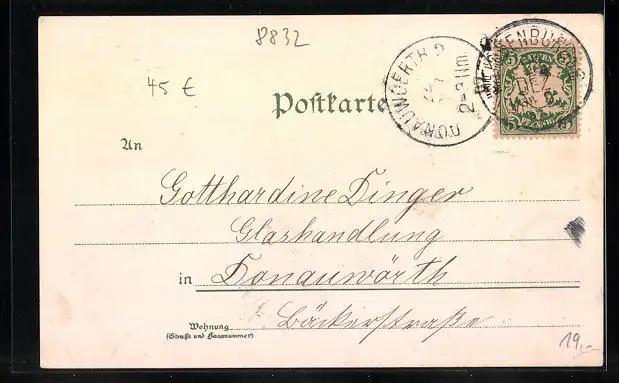 8832
45 €
Postkarte
DONAUWOERTH 2
2-3 Nm.
DEZ
5
5
PFENNIG
An
Gotthardine Dinger
Glashandlung
in Donauwörth
Wohnung
Bäckerstraße
(Straße und Hausnummer)
19,-